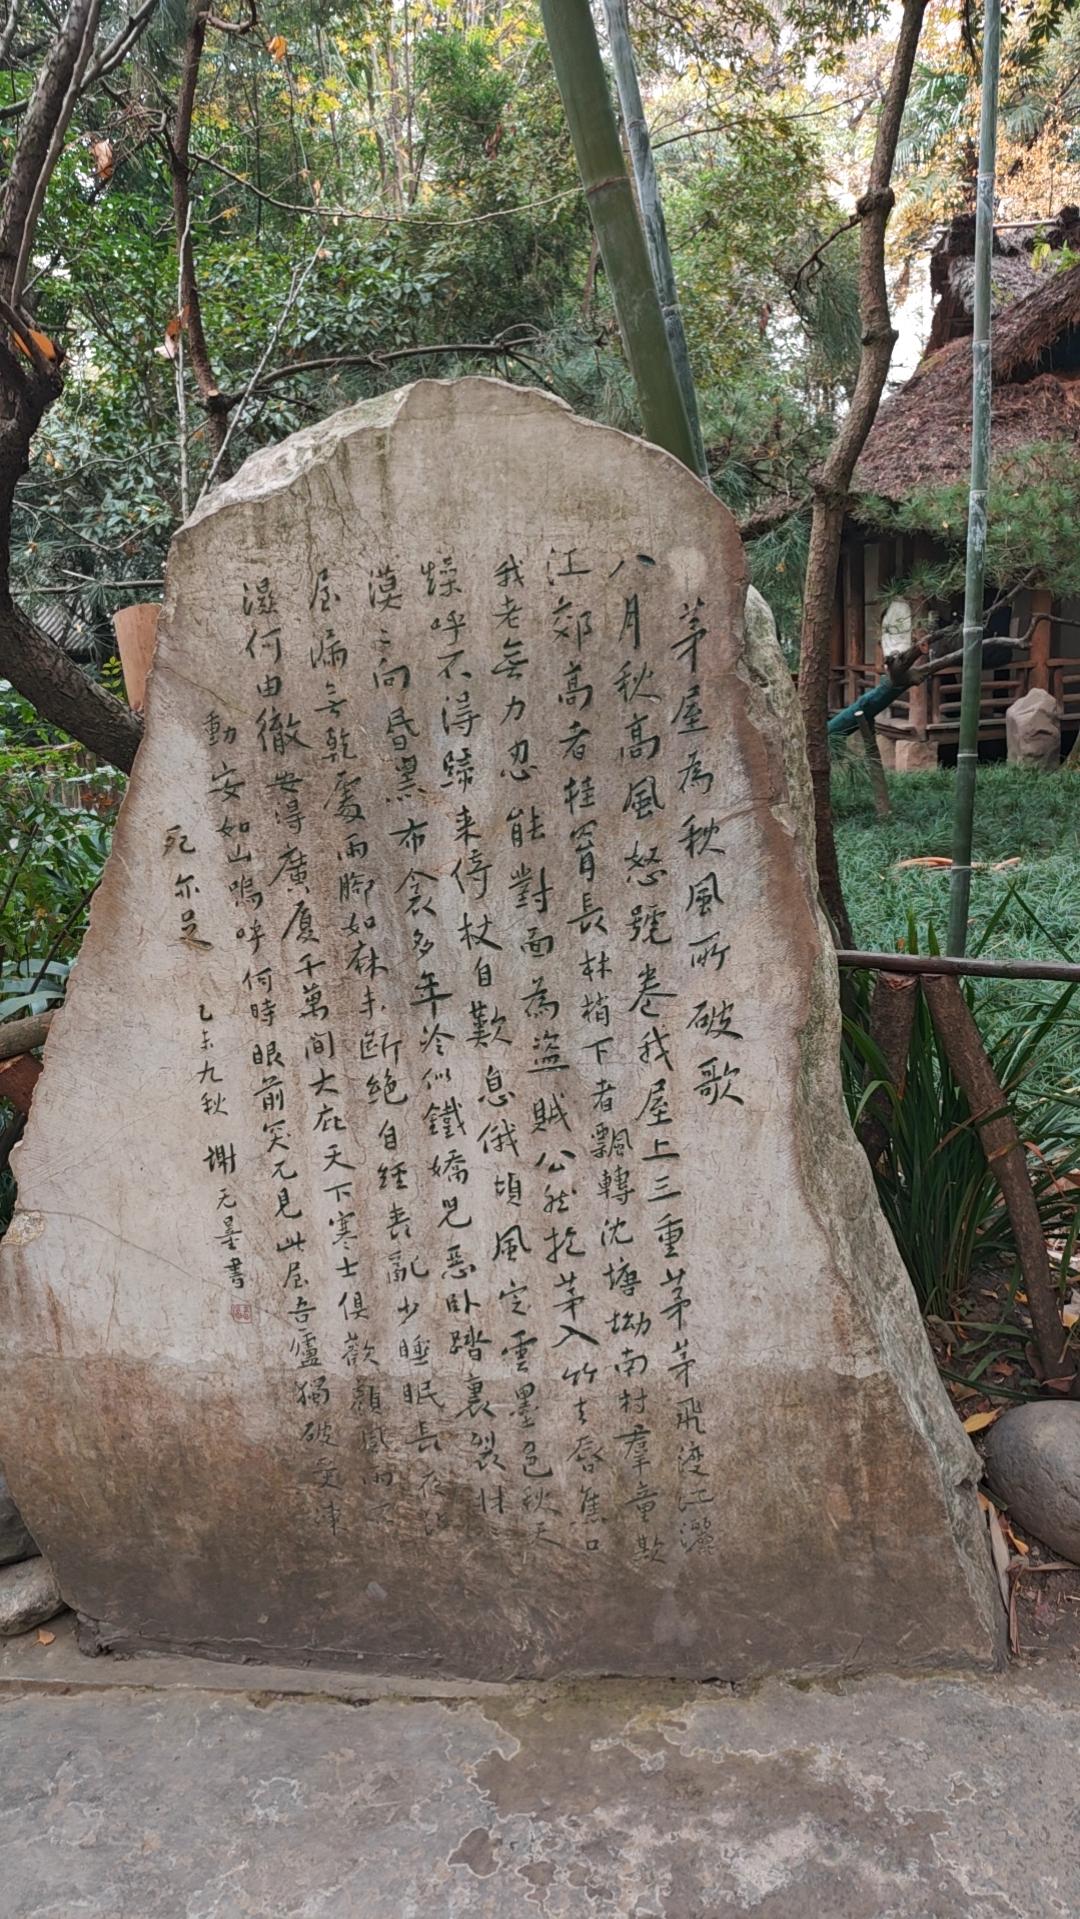 茅屋為秋風所破歌
八月秋高風怒號卷我屋上三重茅茅飛渡江灑
江郊高者挂罥長林梢下者飄轉沈塘坳南村羣童欺
我老無力忍能對面為盜賊公然抱茅入竹去唇焦口
燥呼不得歸来倚杖自歎息俄頃風定雲墨色秋天
漠〻向昏黑布衾多年冷似鐵嬌兒惡卧踏裏裂牀〻
屋漏无乾處雨腳如麻未斷絕自經喪亂少睡眠長夜沾
濕何由徹安得廣廈千萬間大庇天下寒士俱歡顏風雨不
動安如山嗚呼何時眼前突兀見此屋吾廬獨破受凍
死亦足
乙未九秋 謝无量書